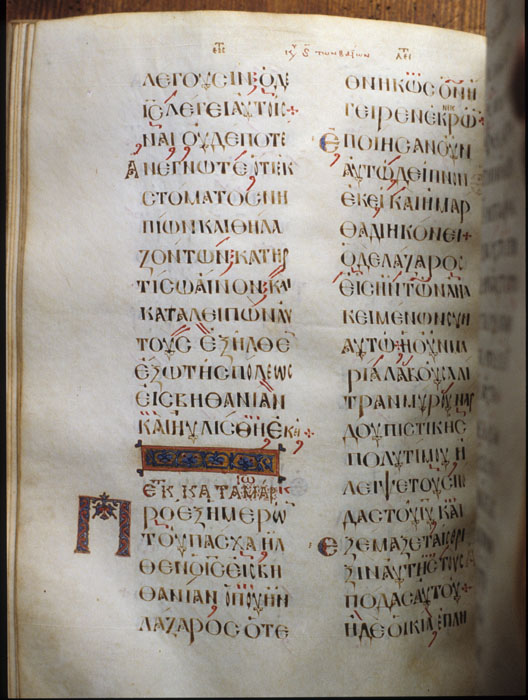 ΛΕΓΟΥCΙΝ Ο ΔΕ
ΙC ΛΕΓΕΙ ΑΥΤΟΙC
ΝΑΙ ΟΥΔΕΠΟΤΕ
ΑΝΕΓΝΩΤΕ ΟΤΙ ΕΚ
CΤΟΜΑΤΟC ΝΗ
ΠΙΩΝ ΚΑΙ ΘΗΛΑ
ΖΟΝΤΩΝ ΚΑΤΗΡ
ΤΙCΩ ΑΙΝΟΝ ΚΑΙ
ΚΑΤΑΛΕΙΠΩΝ ΑΥ
ΤΟΥC ΕΞΗΛΘΕ
ΕΞΩ ΤΗC ΠΟΛΕΩC
ΕΙC ΒΗΘΑΝΙΑΝ
ΚΑΙ ΗΥΛΙCΘΗ ΕΚΕΙ
ΠΡΟ ΕΞ ΗΜΕΡΩ
ΤΟΥ ΠΑCΧΑ ΗΛ
ΘΕΝ Ο ΙC ΕΙC ΒΗ
ΘΑΝΙΑΝ ΟΠΟΥ ΗΝ
ΛΑΖΑΡΟC Ο ΤΕ
ΘΝΗΚΩC ΟΝ Η
ΓΕΙΡΕΝ ΕΚ ΝΕΚΡΩ
ΕΠΟΙΗCΑΝ ΟΥΝ
ΑΥΤΩ ΔΕΙΠΝΟΝ
ΕΚΕΙ ΚΑΙ Η ΜΑΡ
ΘΑ ΔΙΗΚΟΝΕΙ
Ο ΔΕ ΛΑΖΑΡΟC
ΕΙC ΗΝ ΤΩΝ ΑΝΑ
ΚΕΙΜΕΝΩΝ CΥΝ
ΑΥΤΩ Η ΟΥΝ ΜΑ
ΡΙΑ ΛΑΒΟΥCΑ ΛΙ
ΤΡΑΝ ΜΥΡΟΥ ΝΑΡ
ΔΟΥ ΠΙCΤΙΚΗC
ΠΟΛΥΤΙΜΟΥ Η
ΛΕΙΨΕ ΤΟΥC ΠΟ
ΔΑC ΤΟΥ ΙΥ ΚΑΙ
ΕΞΕΜΑΞΕ ΤΑΙC ΘΡΙ
ΞΙΝ ΑΥΤΗC ΤΟΥC
ΠΟΔΑC ΑΥΤΟΥ
Η ΔΕ ΟΙΚΙΑ ΕΠΛΗ